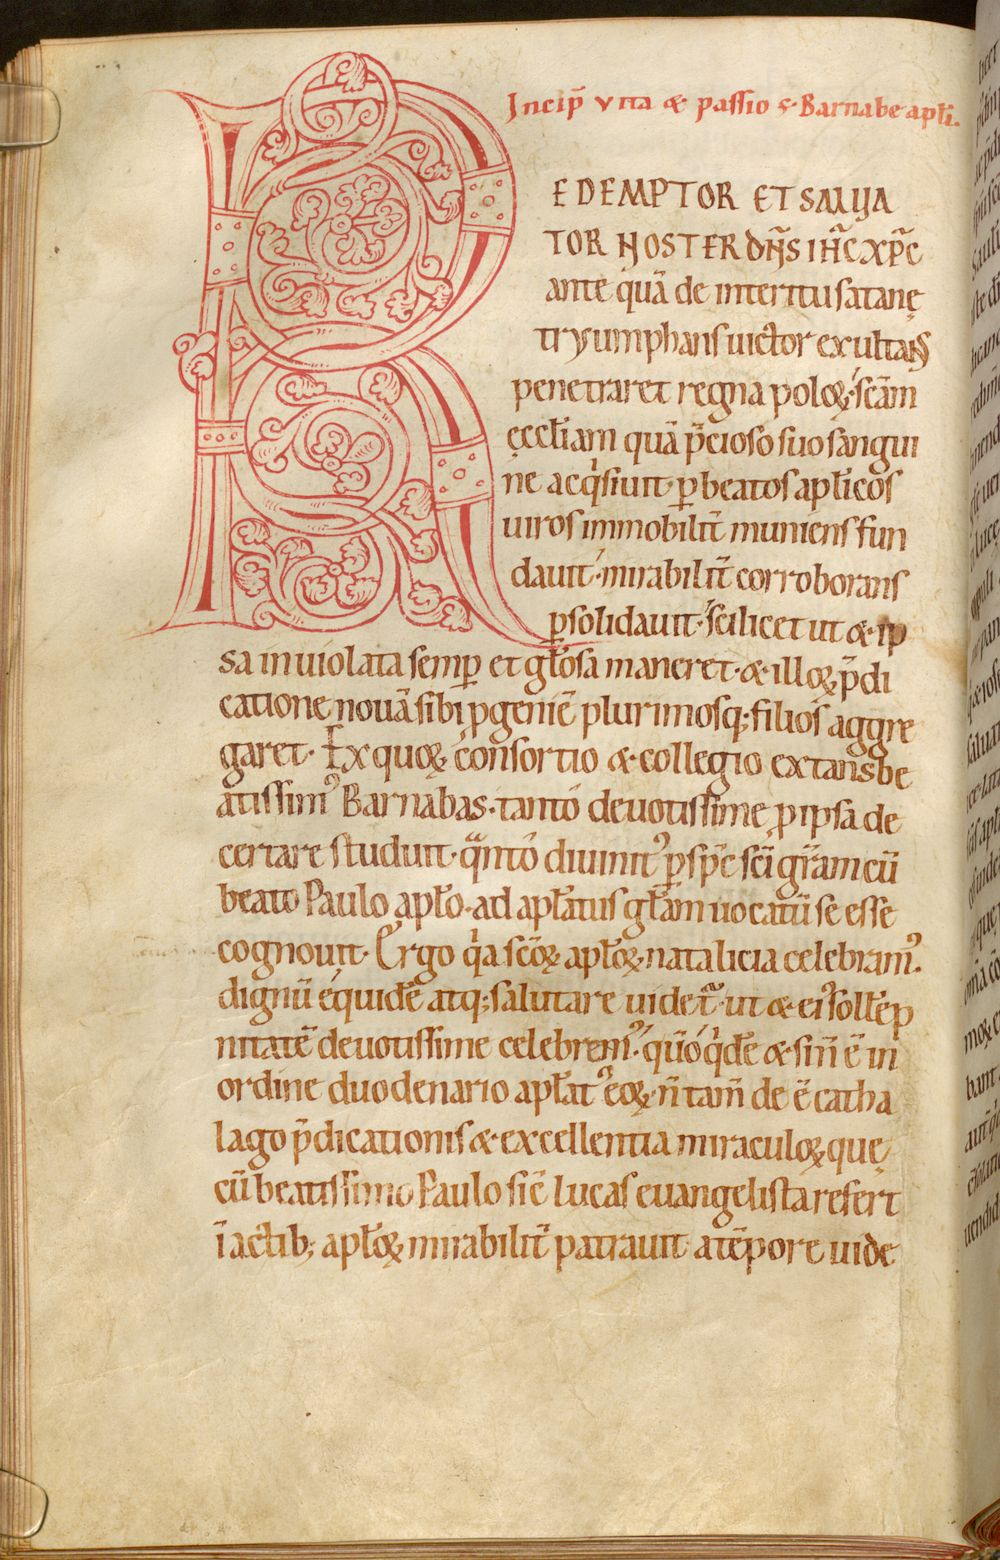 Incip̄ vita & passio s· Barnabe apłi.
REDEMPTOR ET SALUA
TOR NOSTER DÑS IH̄C XP̄C
ante quā de interitu satanę
tryumphans uictor exultans
penetraret regna poloꝝ· sc̄am
ęccłiam quā p̄cioso suo sangui
ne acq͛siuit· ꝑ beatos apłicos
uiros immobilit̄ muniens fun
dauit· mirabilit̄ corroborans
ꝑsolidauit· scilicet ut & ip
sa inuiolata semꝑ et głosa maneret· & illoꝝ p̄di
catione nouā sibi ꝓgeniē plurimosq; filios aggre
garet· Ex quoꝝ consortio & collegio extans be
atissimꝰ Barnabas· tanto deuotissime ꝓ ipsa de
certare studuit· qͣnto diuinitꝰ ꝑ sp̄c sc̄i gr̄am cū
beato Paulo apło· ad apłatus głam uocatū se esse
cognouit· Ergo q͛a sc̄oꝝ apłoꝝ natalicia celebramꝰ·
dignū equidē atq; salutare uidet̄· ut & eiꝰ sollēp
nitatē deuotissime celebremꝰ· quō q͛dē & si ñ ē in
ordine duodenario apłatꝰ eoꝝ· ñ tam̄ de ē catha
lago p̄dicationis & excellentia miraculoꝝ· quę
cū beatissimo Paulo sic̄ Lucas euangelista refert
ī actib; apłoꝝ mirabilit̄ patrauit· a tēpore uide